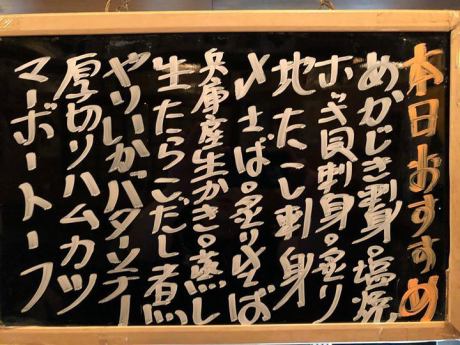 本日おすすめ
めかじき刺身。塩焼
ホッキ貝刺身。炙り
地たこ刺身
〆さば。炙り〆さば
兵庫産生かき。蒸し
生たらこだし煮
やりいかバターソテー
厚切りハムカツ
マーボートーフ